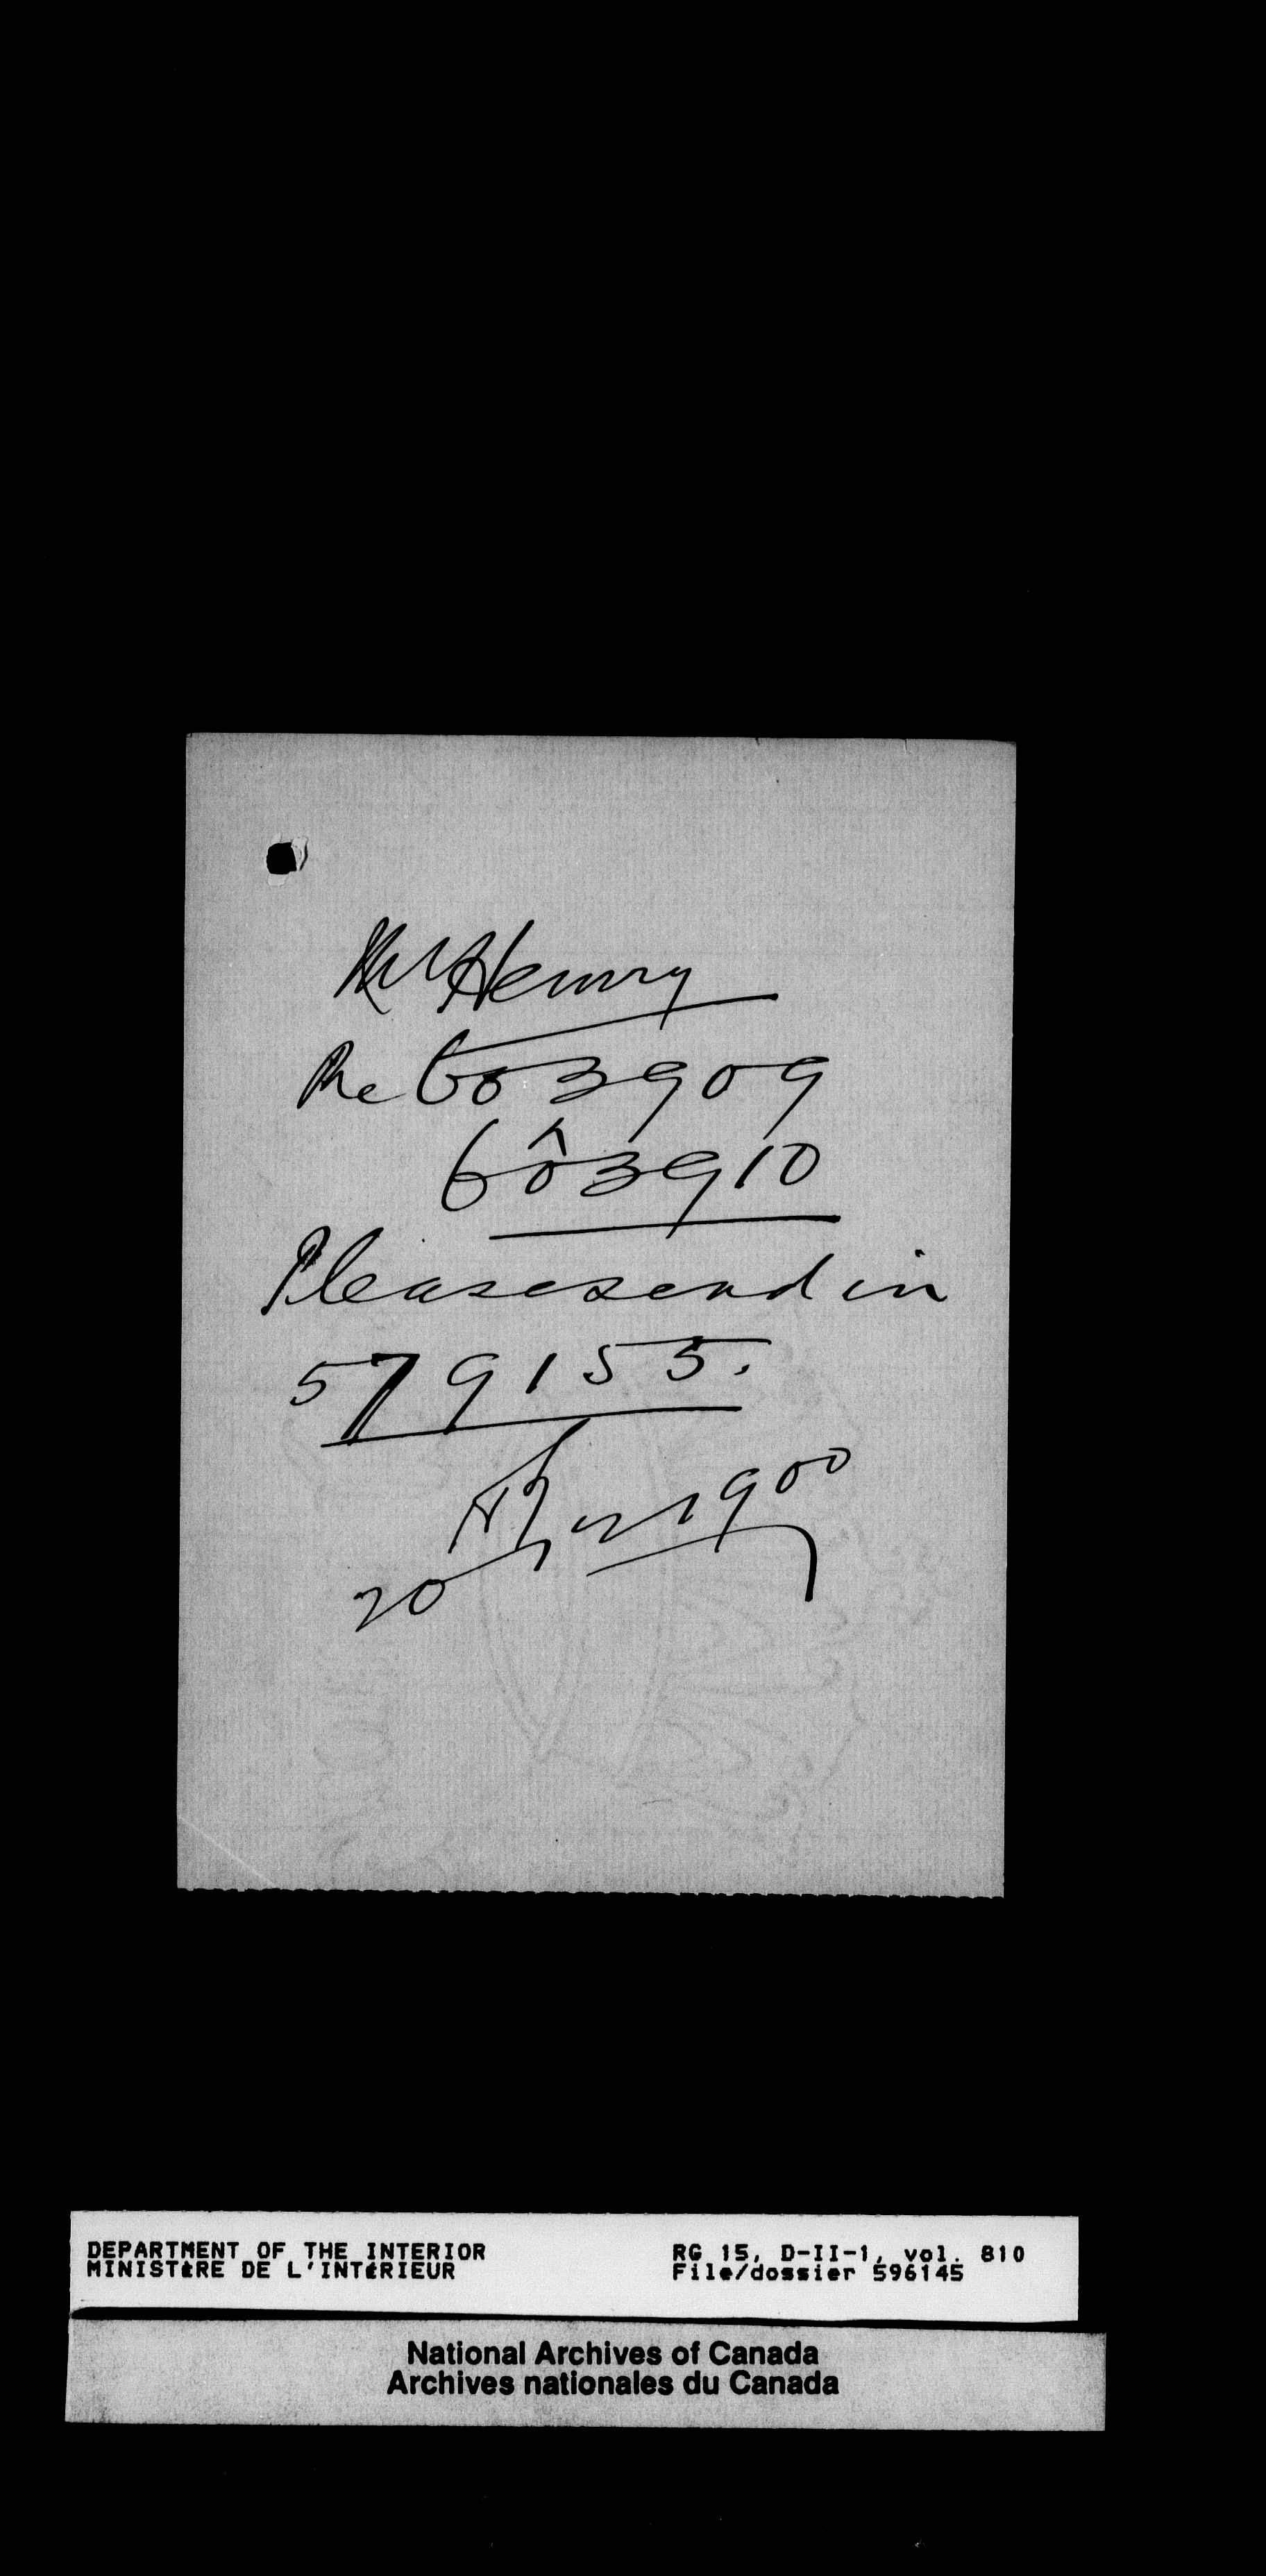 Mr Henry
Re 603909
603910
Please send in
579155.
1900
20
DEPARTMENT OF THE INTERIOR
MINISTÈRE DE L'INTÉRIEUR
RG 15, D-II-1, vol. 810
File/dossier 596145
National Archives of Canada
Archives nationales du Canada